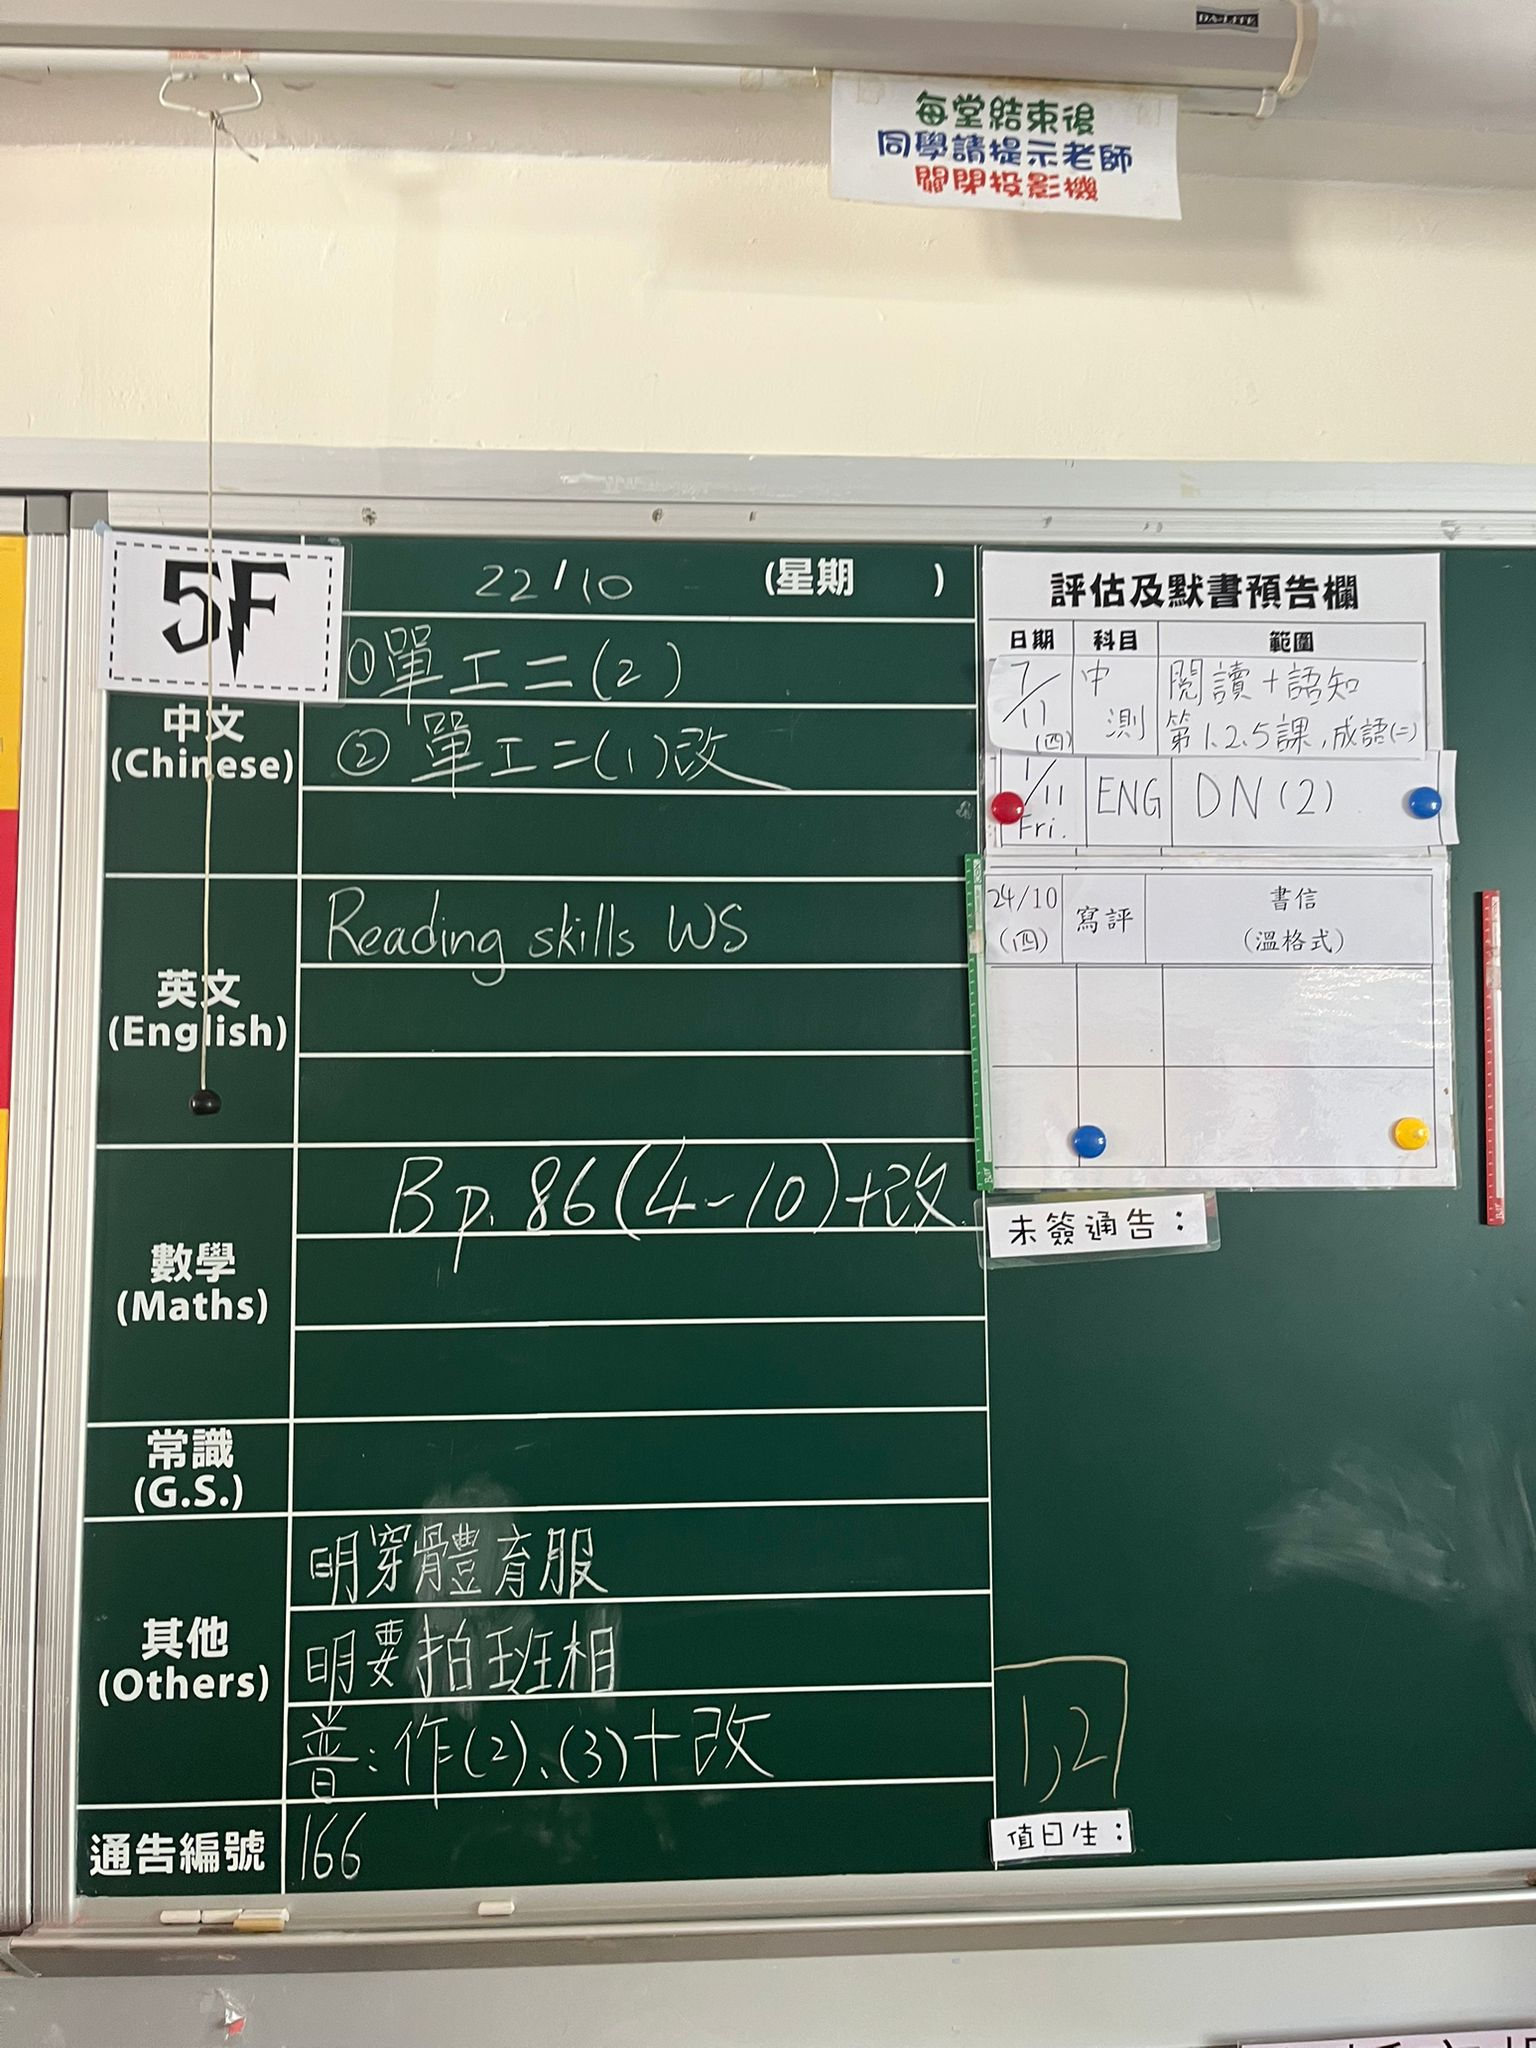 DA-LITE
每堂結束後
同學請提示老師
關閉投影機
5F
22/10 (星期 )
中文
(Chinese)
①單工二(2)
②單工二(1)改
英文
(English)
Reading skills WS
數學
(Maths)
Bp.86(4-10)+改
常識
(G.S.)
其他
(Others)
明穿體育服
明要拍班相
普:作(2)、(3)+改
通告編號
166
評估及默書預告欄
日期 科目 範圍
7/11 (四) 中測 閱讀+語知
第1.2.5課,成語(二)
1/11 Fri. ENG DN(2)
24/10 (四) 寫評 書信
(溫格式)
未簽通告:
1,2
值日生: